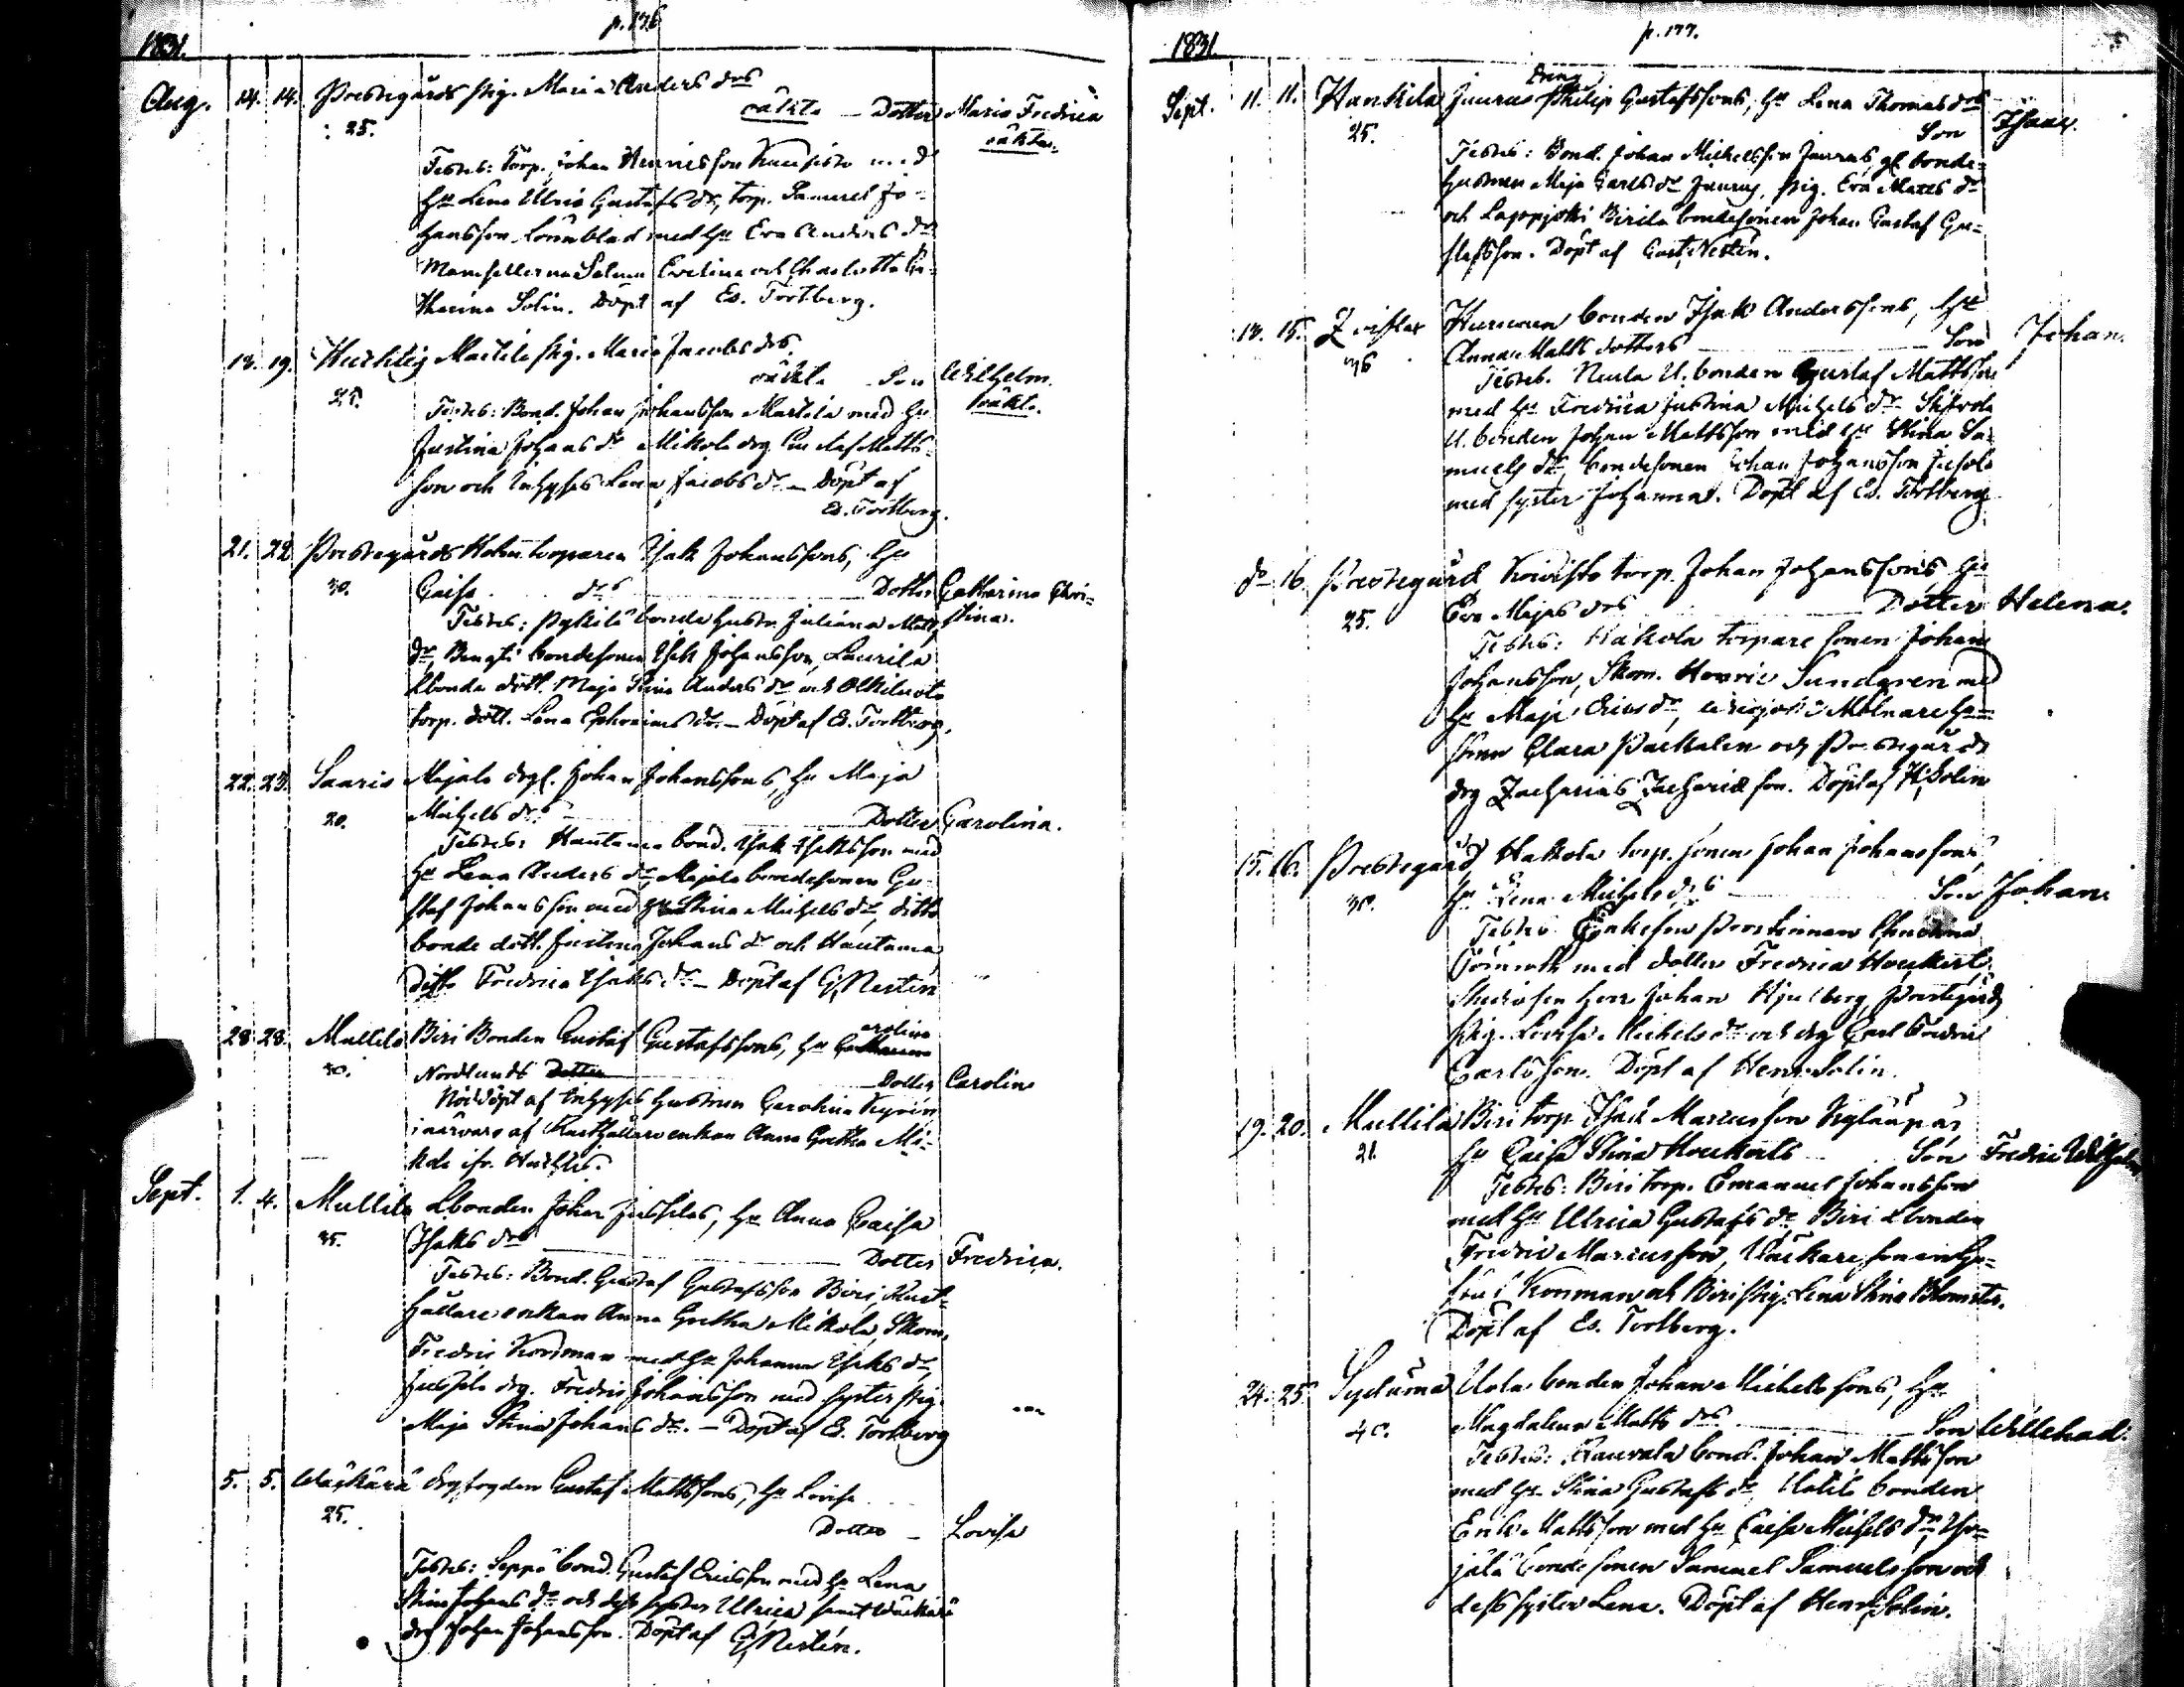 p. 176
1831.
Aug. 14. 14. Prestegårds pig. Maria Anders drs
25. oäkta — Dotter Maria Fredrica
oäkta.
Testes: Torp. Johan Henricsson med
Hu Lena Ulrica Gustafs dr, torp. Samuel Jo-
hansson Lönnblad med Hu Eva Anders dr
Mamsellerna Selma Evelina och Charlotta Ca-
tharina Solin. Döpt af Es. Tortberg.
18. 19. Huchtis Martila pig. Maria Jacobs drs
oäkta Son Wilhelm
25. oäkta.
Testes: Bond. Johan Johansson Martila med Hu
Justina Johans dr Mikola drg Gustaf Matts-
son och Inhyses Lena Jacobs dr — Döpt af
Es. Tortberg.
21. 22. Prestegårds torparen Isak Johanssons, Hu
30. Caisa drs Dotter Catharina Chri-
Testes: Pykilä bonde Hustr. Juliana Matts stina.
dr, Bengti bondesonen Isak Johansson, Laurila
Lbonde dott. Maja Stina Anders dr och Olkiluoto
torp. dott. Lena Ephraims dr — Döpt af Es. Tortberg.
22. 23. Saaris Majala drgk. Johan Johanssons, Hu Maja
20. Michels drs Dotter Carolina.
Testes: Hautama bond. Isak Isaksson med
Hu Lena Anders dr, Majala bondesonen Gu-
staf Johansson med Hu Stina Michels dr, ditto
bonde dott. Justina Johans dr och Hautama
ditto Fredrica Isaks dr — Döpt af G. Nestén
28. 28. Mullila Biri Bonden Gustaf Gustafssons, Hu Carolina
30. Nordlunds Dotter Carolina
Nöddöpt af Inhyses Hustrun Carolina
i närvaro af Rusthållare enkan Anna Gretha Mi-
kola ifr. Huchtis.
Sept. 1. 4. Mullila Lbonden Johan Jussilas, Hu Anna Caisa
35. Isaks drs Dotter Fredrica.
Testes: Bond. Gustaf Gustafsson Biri, Rust-
hållare enkan Anna Gretha Mikola, Skom.
Fredric Nordman med Hu Johanna Isaks dr,
Jussila drg. Fredric Johansson med syster pig.
Maja Stina Johans dr. — Döpt af Es. Tortberg
5. 5. Wäckärä drgfogden Gustaf Mattssons, Hu Lovisa
25. Dotter — Lovisa
Testes: Seppä bond. Gustaf Ericsson med Hu Lena
Stina Johans dr och dess syster Ulrica samt Wäckärä
drg Johan Johansson. Döpt af G. Nestén.
p. 177.
1831.
Sept. 11. 11. Hankila Juurus dreng Philip Gustafssons, Hu Lena Thomas drs
25. Son Isaac.
Testes: Bond. Johan Michelsson Juurus, gl. bonde-
hustrun Maja Carls dr Juurus, pig. Eva Matts dr
och Lapijoki Birila bondesonen Johan Gustaf Gu-
stafsson. Döpt af Gust. Nestén.
13. 15. bonden Isak Anderssons, Hu
36 Anna Matts dotters Son Johan.
Testes. U. bonden Gustaf Mattsson
med Hu Fredrica Justina Michels dr
U. bonden Johan Mattsson med Hu Stina Sa-
muels dr, bondesonen Johan Johansson
med syster Johanna. Döpt af Es. Tortberg
do 16. Prestegård Koivisto torp. Johan Johanssons, Hu
25. Eva Matts drs Dotter Helena.
Testes: Hakola torpare sonen Johan
Johansson, Skom. Henric Sundgren med
Hu Maja Erics dr, Mölnare Hu-
strun Clara och Prestegårds
drg Zacharias Zachariæson. Döpt af H. Solin
15. 16. Prestegård, Hakola torp. sonen Johan Johanssons
30. Hu Lena Michels drs Son Johan
Testes
med dotter Fredrica Houckert,
Studiosen Herr Johan Hjulberg, Prestegårds
pig. Lovisa Michels dr och drg Carl Fredric
Carlsson. Döpt af Henr. Solin.
19. 20. Mullila Biri torp. Isak Marcusson
21. Hu Caisa Stina Houckerts Son Fredric Wilhelm
Testes: Biri torp. Emanuel Johansson
med Hu Ulrica Gustafs dr Biri Lbonden
Fredric Marcusson,
Nordman och Biri pig. Lena Stina Blomster.
Döpt af Es. Tortberg.
24. 25. Sydänmä Uola bonden Johan Michelssons, Hu
40. Magdalena Matts drs Son Willehad.
Testes: bond. Johan Mattsson
med Hu Stina Gustafs dr, bonden
Eric Mattsson med Hu Caisa Michels dr, Iso-
jälä bondesonen Samuel Samuelsson och
dess syster Lena. Döpt af Henr. Solin.